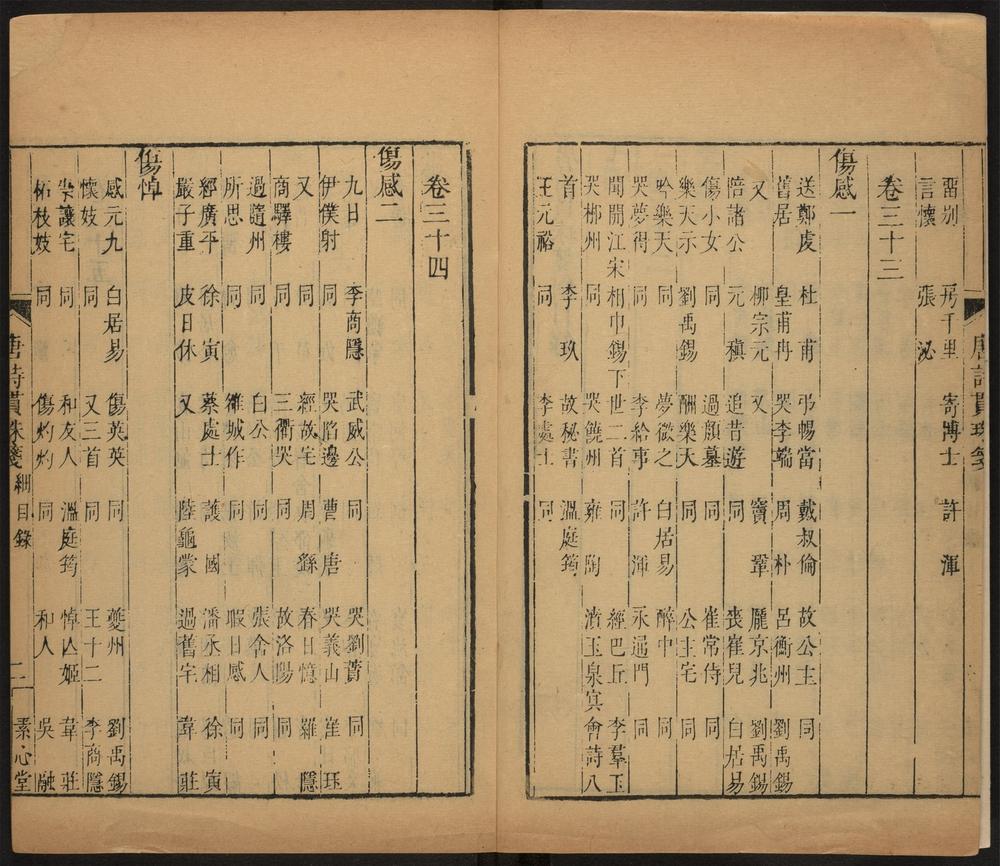 留别 房千里 寄博士 許渾
言懷 張泌
卷三十三
傷感一
送鄭虔 杜甫 弔暢當 戴叔倫 故公主 同
舊居 皇甫冉 哭李端 周朴 呂衡州 劉禹錫
又 柳宗元 又 竇鞏 龐京兆 劉禹錫
陪諸公 元稹 追昔遊 同 喪崔兒 白居易
傷小女 同 過顏墓 同 崔常侍 同
樂天示 劉禹錫 酬樂天 同 公主宅 同
吟樂天 同 夢微之 白居易 醉中 同
哭夢得 同 李給事 許渾 永通門 同
聞開江宋相巾錫下世二首 同 經巴丘 李羣玉
哭郴州 同 哭饒州 雍陶 濱玉泉寘會詩八
首 李玖 故秘書 溫庭筠
王元裕 同 李處士 同
唐詩貫珠箋
卷三十四
傷感二
九日 李商隱 武威公 同 哭劉蕡 同
伊僕射 同 哭陷邊 曹唐 哭義山 崔珏
又 同 經故宅 周繇 春日憶 羅隱
商驛樓 同 三衢哭 同 故洛陽 同
過隨州 同 白公 同 張舍人 同
所思 同 維城作 同 暇日感 同
經廣平 徐寅 蔡處士 護國 潘丞相 徐寅
嚴子重 皮日休 又 陸龜蒙 過舊宅 韋莊
傷悼
感元九 白居易 傷英英 同 夔州 劉禹錫
懷妓 同 又三首 同 王十二 李商隱
柴讓宅 同 和友人 溫庭筠 悼亾姬 韋莊
柘枝妓 同 傷灼灼 同 和人 吳融
唐詩貫珠箋 細目錄 二 素心堂